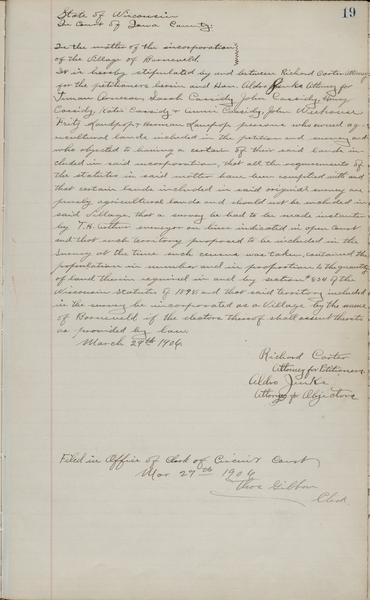 19
State of Wisconsin
In Court of Iowa County.
In the matter of the incorporation
of the Village of Barneveld.
It is hereby stipulated by and between Richard Carter Attorney
for the petitioners herein and Hon. Aldro Jenks Attorney for
Arneson, Sarah Cassidy, John Cassidy,
Cassidy, Kate Cassidy, Annie Cassidy, John
Fritz and Herman persons who owned ag-
ricultural lands included in the petition and survey and
who objected to having a certain of their said lands in-
cluded in said incorporation, that all the requirements of
the statutes in said matter have been complied with and
that certain lands included in said original survey are
purely agricultural lands and should not be included in
said village, that a survey be had to be made instanter
by T. H. Arthur surveyor on lines indicated in open Court
and that such territory proposed to be included in the
survey at the time such census was taken, contained the
population in number and in proportion to the quantity
of land therein required in and by section 854 of the
Wisconsin Statutes of 1898 and that said territory included
in the survey be incorporated as a Village by the name
of Barneveld if the electors thereof shall assent thereto
as provided by law.
March 27th 1906.
Richard Carter
Attorney for Petitioners
Aldro Jenks
Attorney for Objectors
Filed in Office of Clerk of Circuit Court
Mar 27th 1906
Thos Gibbon
Clerk